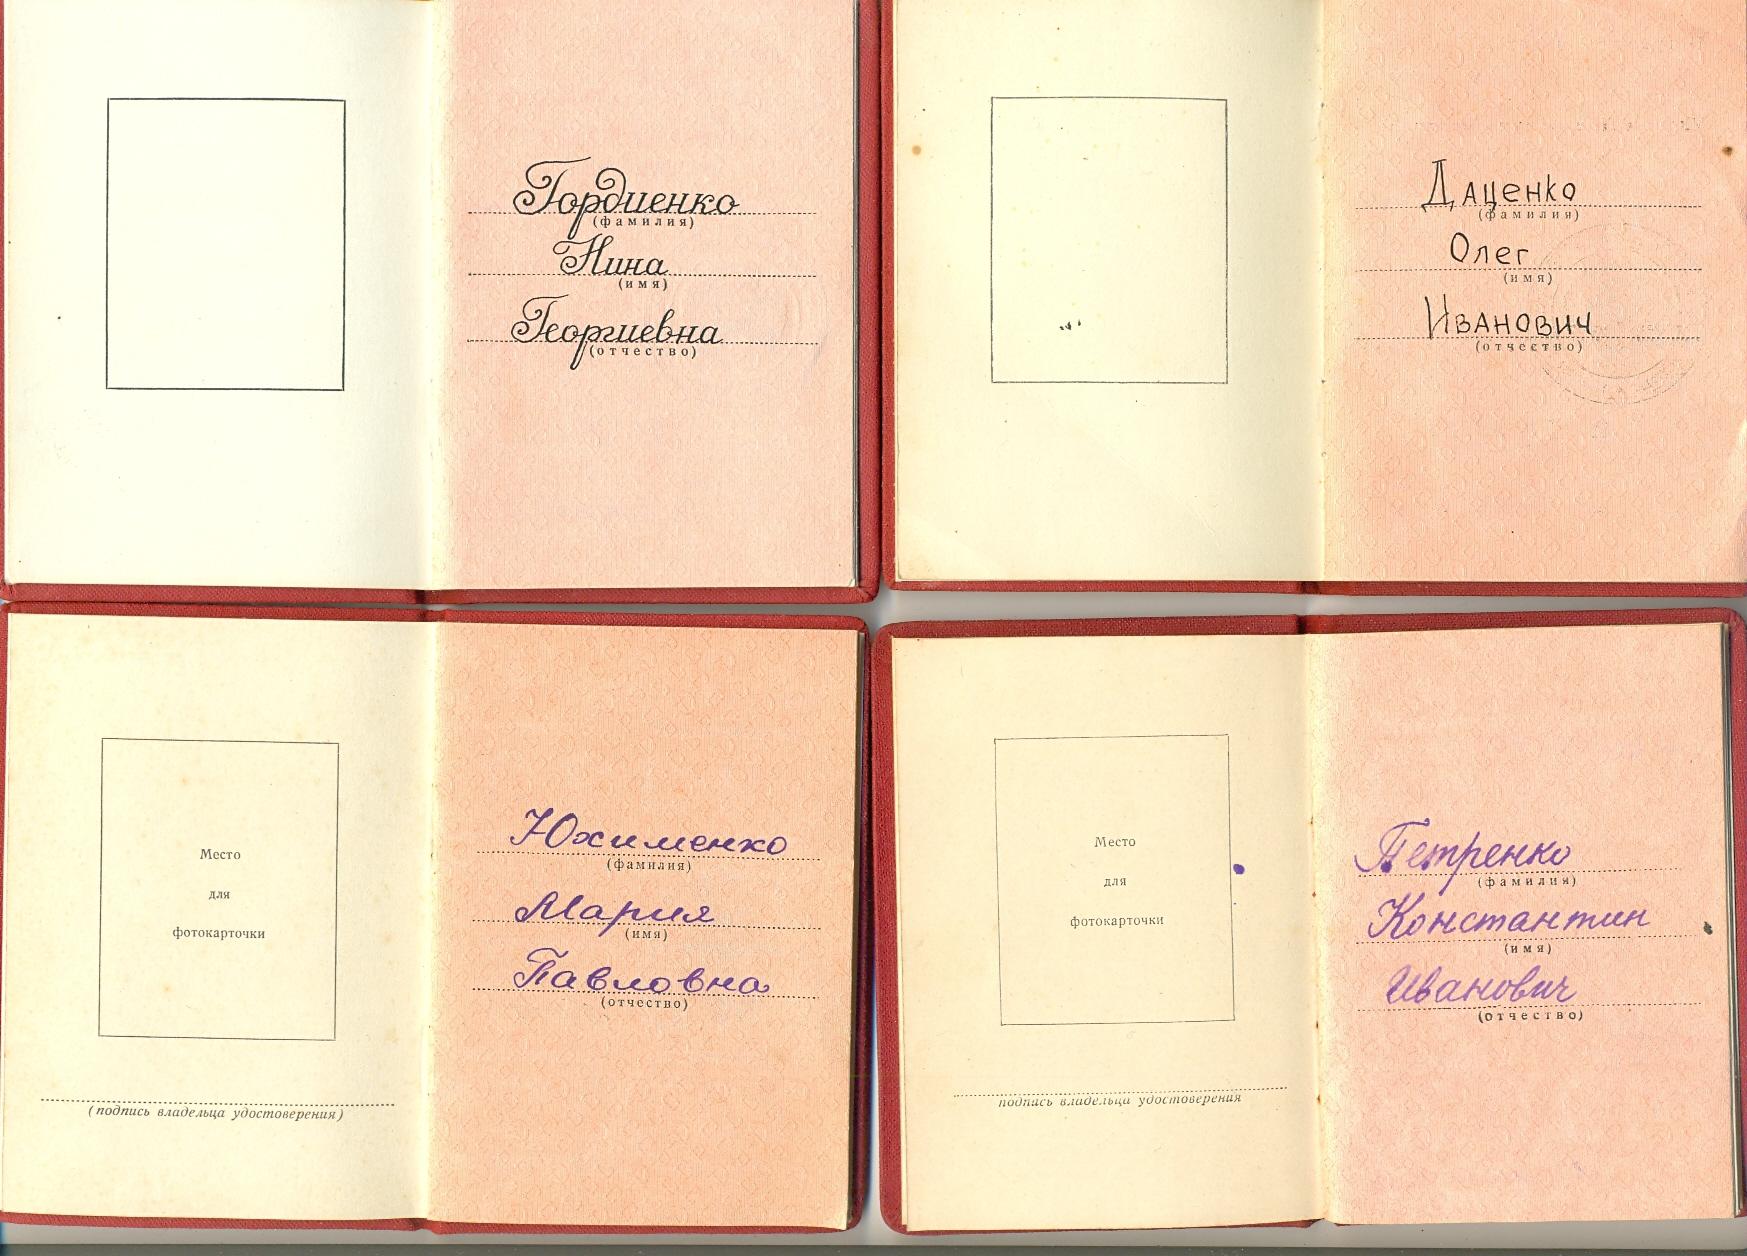 Гордиенко
(фамилия)
Нина
(имя)
Георгиевна
(отчество)
Даценко
(фамилия)
Олег
(имя)
Иванович
(отчество)
Место
для
фотокарточки
(подпись владельца удостоверения)
Юхименко
(фамилия)
Мария
(имя)
Павловна
(отчество)
Место
для
фотокарточки
подпись владельца удостоверения
Петренко
(фамилия)
Константин
(имя)
Иванович
(отчество)